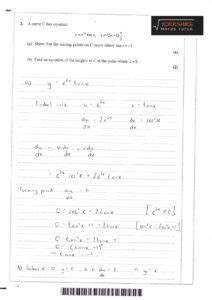 YORKSHIRE
MATHS TUTOR
2. A curve C has equation
y = e²ˣ tan x, x ≠ (2n + 1) π/2
(a) Show that the turning points on C occur where tan x = −1.
(4)
(b) Find an equation of the tangent to C at the point where x = 0.
(2)
a) y = e²ˣ tanx
Product rule u = e²ˣ v = tanx
du/dx = 2e²ˣ dv/dx = sec²x
dy/dx = u dv/dx + v du/dx
= e²ˣ sec²x + 2e²ˣ tanx
Turning point dy/dx = 0
0 = sec²x + 2tanx [e²ˣ ≠ 0]
0 = tan²x + 1 + 2tanx [sec²x = tan²x + 1]
0 = tan²x + 2tanx + 1
0 = (tanx + 1)²
⇒ tanx = −1
b) When x = 0 y = 0 dy/dx = 1 ⇒ y = x